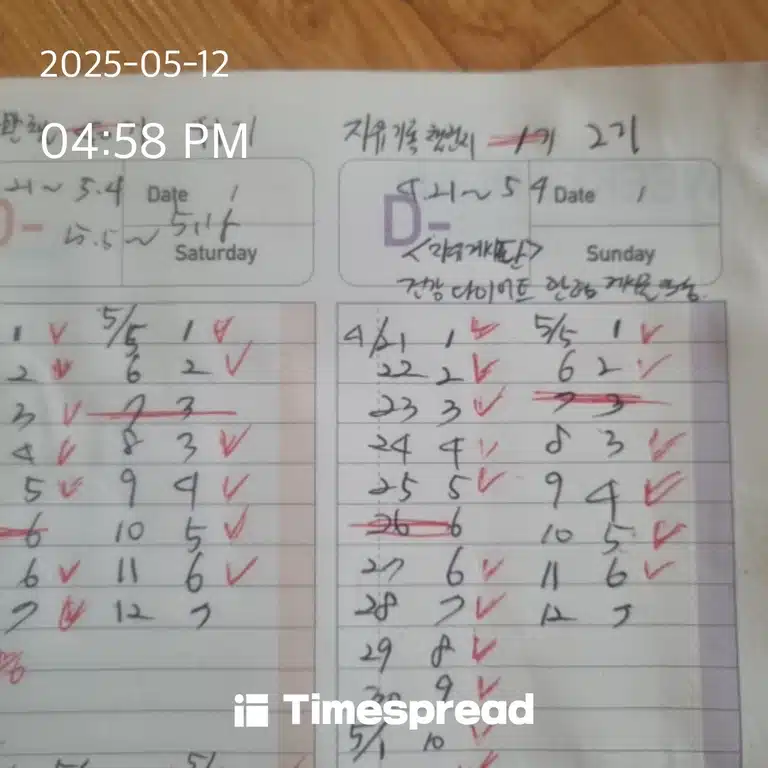 2025-05-12
04:58 PM
21~ 5.4 Date 1
D-
5.5~ 5.18
Saturday
1 5/5 1
2 6 2
3 7 3
4 8 3
5 9 4
6 10 5
6 11 6
7 12 7
%
5/
자유기록 챌린지 1기 2기
4.21~ 5 4 Date 1
D-
<자유게시판>
Sunday
건강 다이어트
4/21 1 5/5 1
22 2 6 2
23 3 7 3
24 4 8 3
25 5 9 4
26 6 10 5
27 6 11 6
28 7 12 7
29 8
30 9
5/1 10
Timespread